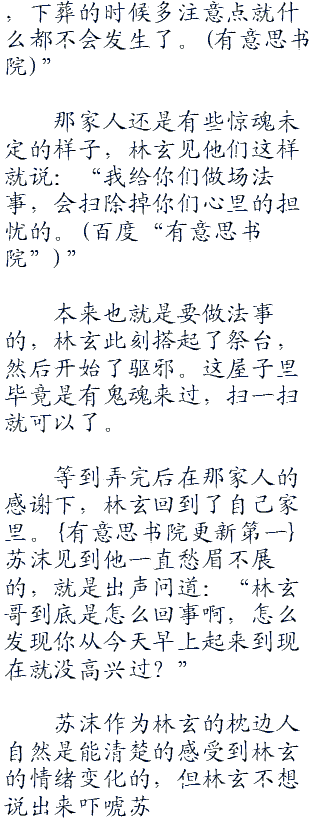 ，下葬的时候多注意点就什
么都不会发生了。(有意思书
院)”
那家人还是有些惊魂未
定的样子，林玄见他们这样
就说：“我给你们做场法
事，会扫除掉你们心里的担
忧的。(百度“有意思书
院”)”
本来也就是要做法事
的，林玄此刻搭起了祭台，
然后开始了驱邪。这屋子里
毕竟是有鬼魂来过，扫一扫
就可以了。
等到弄完后在那家人的
感谢下，林玄回到了自己家
里。{有意思书院更新第一}
苏沫见到他一直愁眉不展
的，就是出声问道：“林玄
哥到底是怎么回事啊，怎么
发现你从今天早上起来到现
在就没高兴过？”
苏沫作为林玄的枕边人
自然是能清楚的感受到林玄
的情绪变化的，但林玄不想
说出来吓唬苏